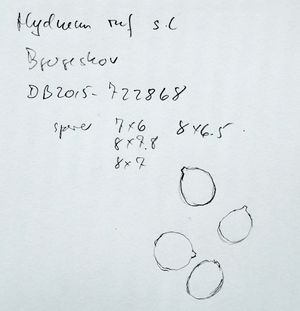 Hydnum ruf s.l
Bjergeskov
DB2015-722868
spores 7x6 8x6.5
8x7.8
8x7